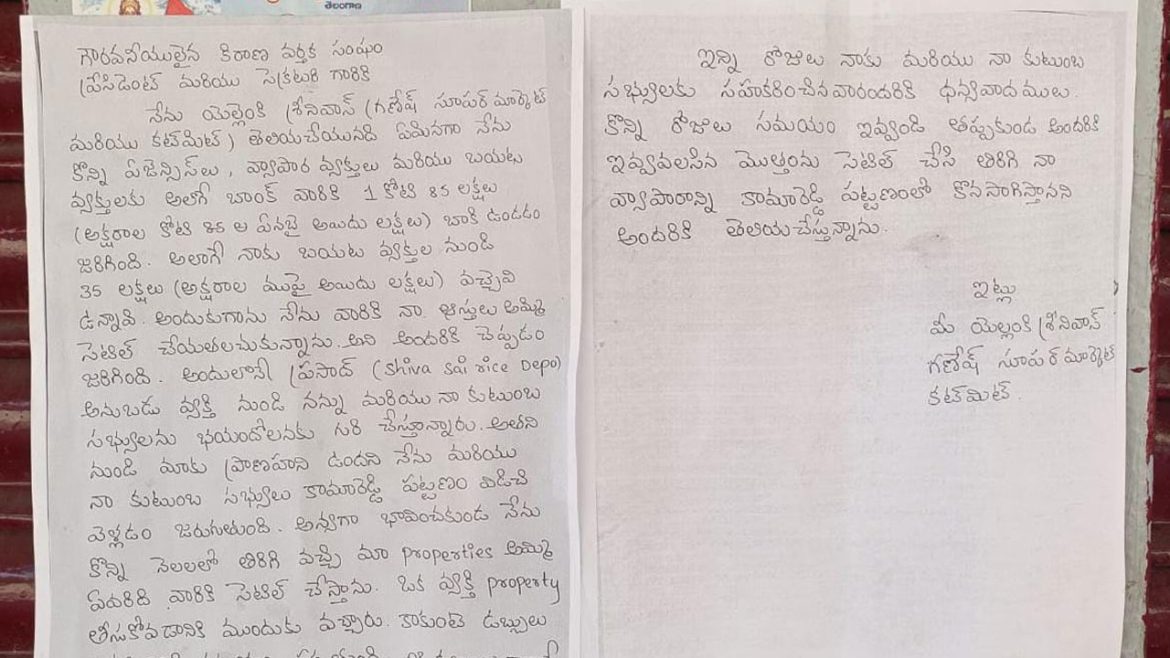 తెలంగాణ
గౌరవనీయులైన కిరాణ వర్తక సంఘం
ప్రేసిడెంట్ మరియు సెక్రటరి గారికి
నేను యెల్లంకి శ్రీనివాస్ (గణేష్ సూపర్ మార్కెట్
మరియు కట్‌మిట్) తెలియచేయునది ఏమనగా నేను
కొన్ని ఏజెన్సిస్‌లు, వ్యాపార వ్యక్తులు మరియు బయట
వ్యక్తులకు అలాగే బాంక్ వారికి 1 కోటి 85 లక్షలు
(అక్షరాల కోటి 85 ల ఏనబై అయిదు లక్షలు) బాకి ఉండడం
జరిగింది. అలాగే నాకు బయట వ్యక్తుల నుండి
35 లక్షలు (అక్షరాల ముప్పై అయిదు లక్షలు) వచ్చెవి
ఉన్నావి. అందుకుగాను నేను వారికి నా ఆస్తులు అమ్మి
సెటిల్ చేయతలచుకున్నాను. అని అందరికి చెప్పడం
జరిగింది. అందులోనే ప్రసాద్ (Shiva sai rice Depo)
అనుబడు వ్యక్తి నుండి నన్ను మరియు నా కుటుంబ
సభ్యులను భయందోలనకు గురి చేస్తూన్నారు. అతని
నుండి మాకు ప్రాణహని ఉందని నేను మరియు
నా కుటుంబ సభ్యులు కామారెడ్డి పట్టణం విడిచి
వెళ్లడం జరుగుతుంది. అన్యగా భావించకుండ నేను
కొన్ని నెలలలో తిరిగి వచ్చి మా properties అమ్మి
ఏదరిది వారికి సెటిల్ చేస్తాను. ఒక వ్యక్తి property
తీసుకోవడానికి ముందుకు వచ్చారు. కాకుంటె డబ్బులు
ఇన్ని రోజులు నాకు మరియు నా కుటుంబ
సభ్యులకు సహకరించిన వారందరికి ధన్యవాదములు.
కొన్ని రోజులు సమయం ఇవ్వండి తప్పకుండ అందరికి
ఇవ్వవలసిన మొత్తంను సెటిల్ చేసి తిరిగి నా
వ్యాపారాన్ని కామారెడ్డి పట్టణంలో కొనసాగిస్తానని
అందరికి తెలియచేస్తున్నాను.
ఇట్లు
మీ యెల్లంకి శ్రీనివాస్
గణేష్ సూపర్ మార్కెట్
కట్‌మిట్.